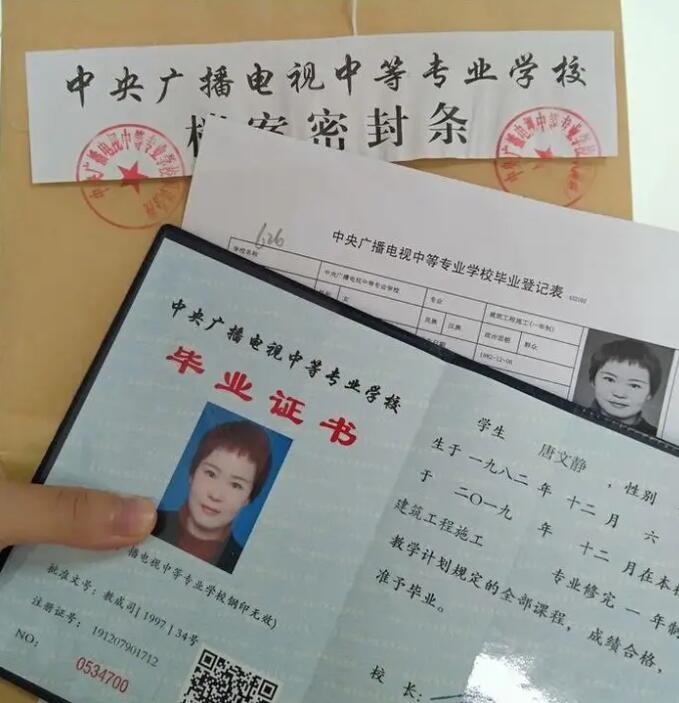 中央广播电视中等专业学校
档案密封条
中央广播电视中等专业学校
626
中央广播电视中等专业学校毕业登记表
学校名称 中央广播电视中等专业学校 专业 建筑工程施工(一年制)
女 民族 汉族 政治面貌 群众
1982-12-06
中央广播电视中等专业学校
毕业证书
播电视中等专业学校钢印无效)
批准文号:教成司[1997]34号
注册证号:191207901712
NO:
0534700
学生 唐文静 ,性别
生于一九八二年十二月六
于二〇一九年十二月在本校
建筑工程施工 专业修完一年制
教学计划规定的全部课程,成绩合格,
准予毕业。
校长: